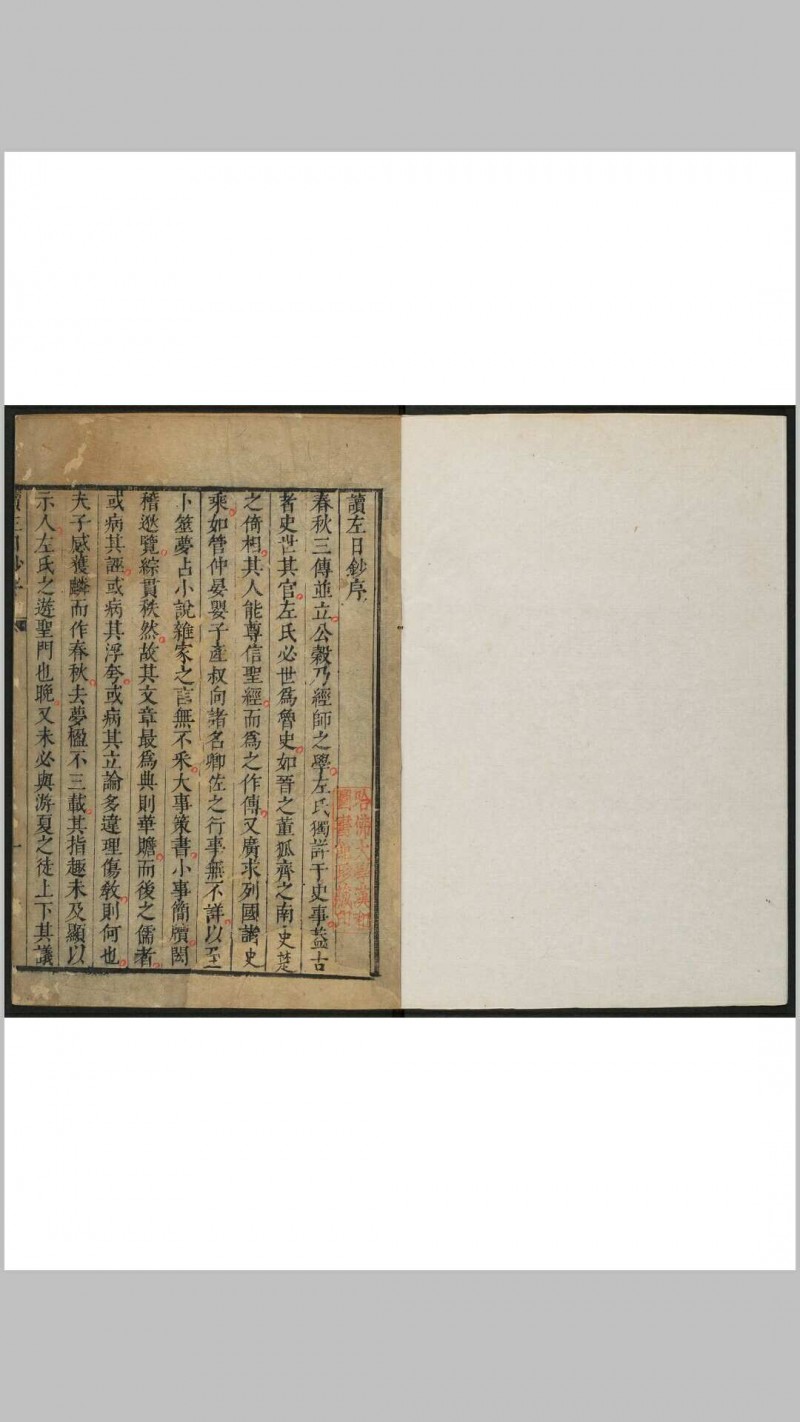 讀左日鈔序
春秋三傳並立公穀乃經師之學左氏獨詳于史事蓋古
者史世其官左氏必世爲魯史如晉之董狐齊之南史楚
之倚相其人能尊信聖經而爲之作傳又廣求列國諸史
乘如管仲晏嬰子產叔向諸名卿佐之行事無不詳以至
卜筮夢占小說雜家之言無不采大事策書小事簡牘閎
稽逖覽綜貫秩然故其文章最爲典則華贍而後之儒者
或病其誣或病其浮夸或病其立論多違理傷敎則何也
夫子感獲麟而作春秋去夢楹不三載其指趣未及顯以
示人左氏之遊聖門也晚又未必與游夏之徒上下其議